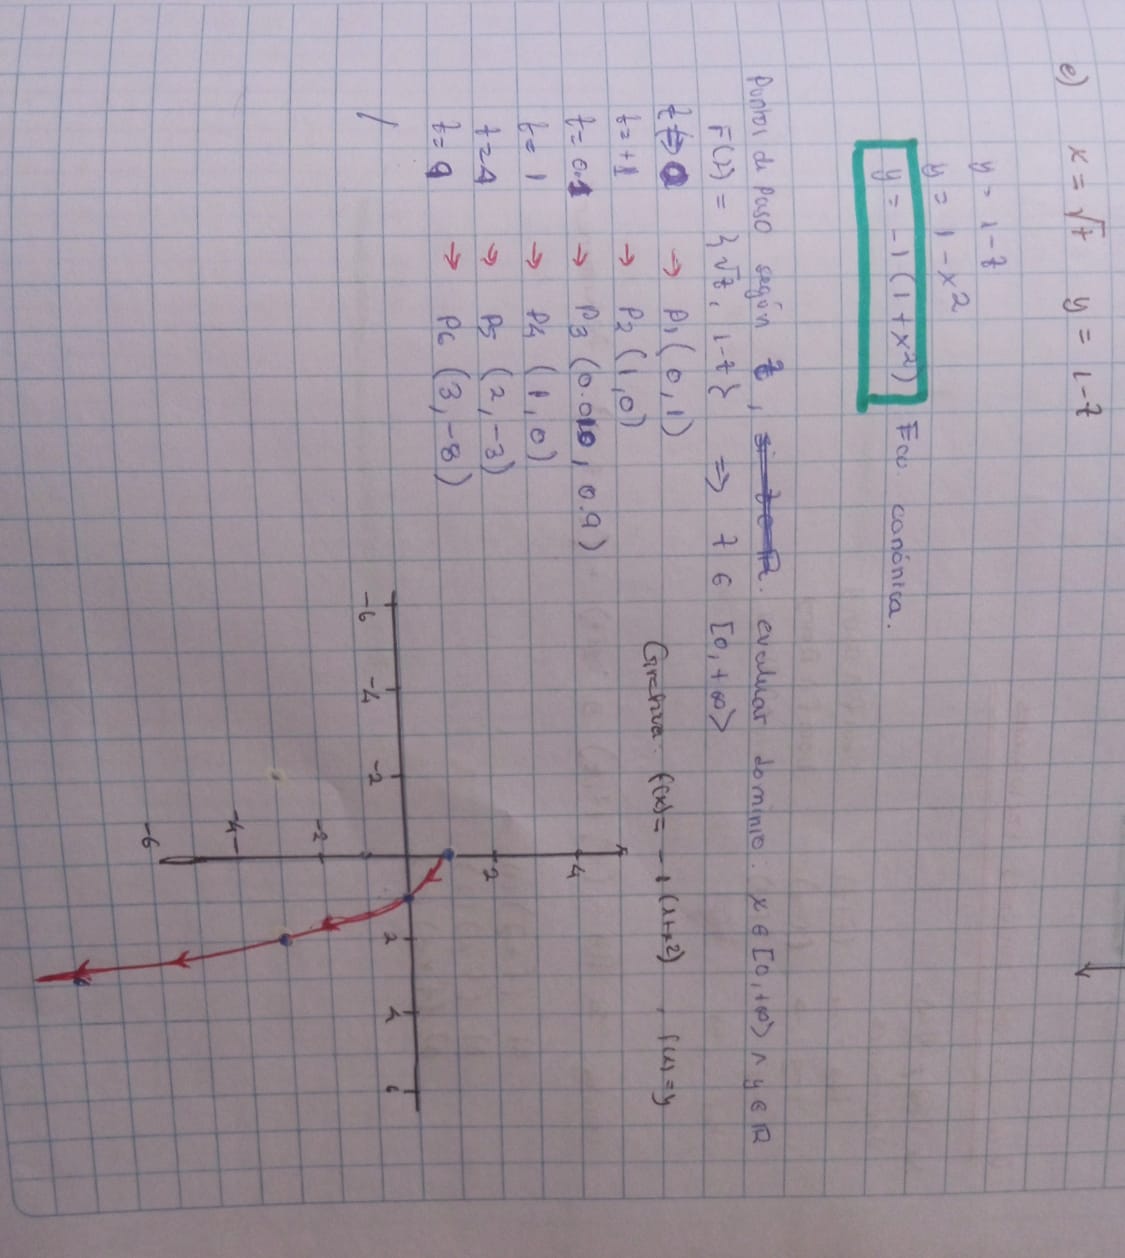 e) x = √t y = 1-t
y = 1-t
y = 1-x²
y = -1 (1+x²) Ecu. canónica.
Puntos de Paso según t, si t ∈ ℝ. evaluar dominio. x ∈ [0,+∞> ∧ y ∈ ℝ
F(t) = {√t, 1-t} => t ∈ [0,+∞>
t=>0 → P1 (0,1)
t=+1 → P2 (1,0)
t=0.1 → P3 (0.010, 0.9)
t= 1 → P4 (1,0)
t=4 → P5 (2,-3)
t=9 → P6 (3,-8)
Grafica: f(x)= -1 (1+x²) , f(x)=y
4
2
-6 -4 -2 2 4 6
-2
-4
-6